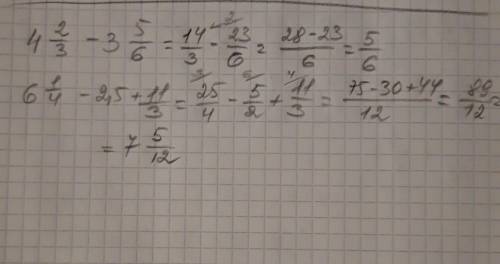 4 2/3 - 3 5/6 = 14/3 - 23/6 = (28 - 23)/6 = 5/6
6 1/4 - 2,5 + 11/3 = 25/4 - 5/2 + 11/3 = (75 - 30 + 44)/12 = 89/12 =
= 7 5/12